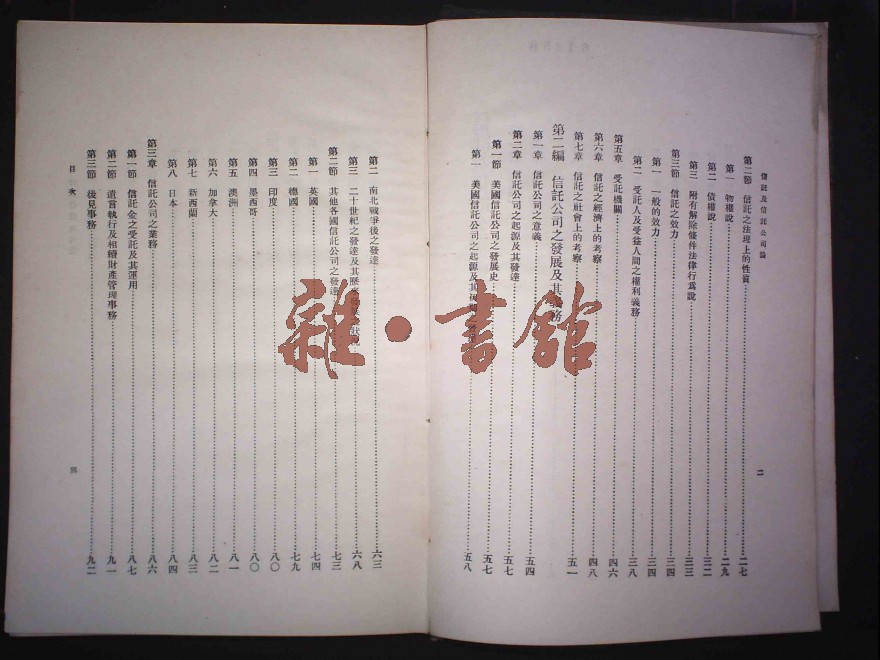 信託及信託公司論
第二節 信託之法理上的性質……二七
第一 物權說……二九
第二 債權說……三二
第三 附有解除條件法律行爲說……三三
第三節 信託之效力……三四
第一 一般的效力……三四
第二 受託人及受益人間之權利義務……三八
第五章 受託機關……四六
第六章 信託之經濟上的考察……四八
第七章 信託之社會上的考察……五一
第二編 信託公司之發展及其業務
第一章 信託公司之意義……五四
第二章 信託公司之起源及其發達……五七
第一節 美國信託公司之發展史……五七
第一 美國信託公司之起源及其……五八
二
第二 南北戰爭後之發達……六三
第三 二十世紀之發達及其歷來……狀……六八
第二節 其他各國信託公司之發達……七三
第一 英國……七四
第二 德國……七九
第三 印度……八〇
第四 墨西哥……八〇
第五 澳洲……八一
第六 加拿大……八二
第七 新西蘭……八三
第八 日本……八四
第三章 信託公司之業務……八六
第一節 信託金之受託及其運用……八七
第二節 遺言執行及相續財產管理事務……九一
第三節 後見事務……九二
目次
三
雜·書館